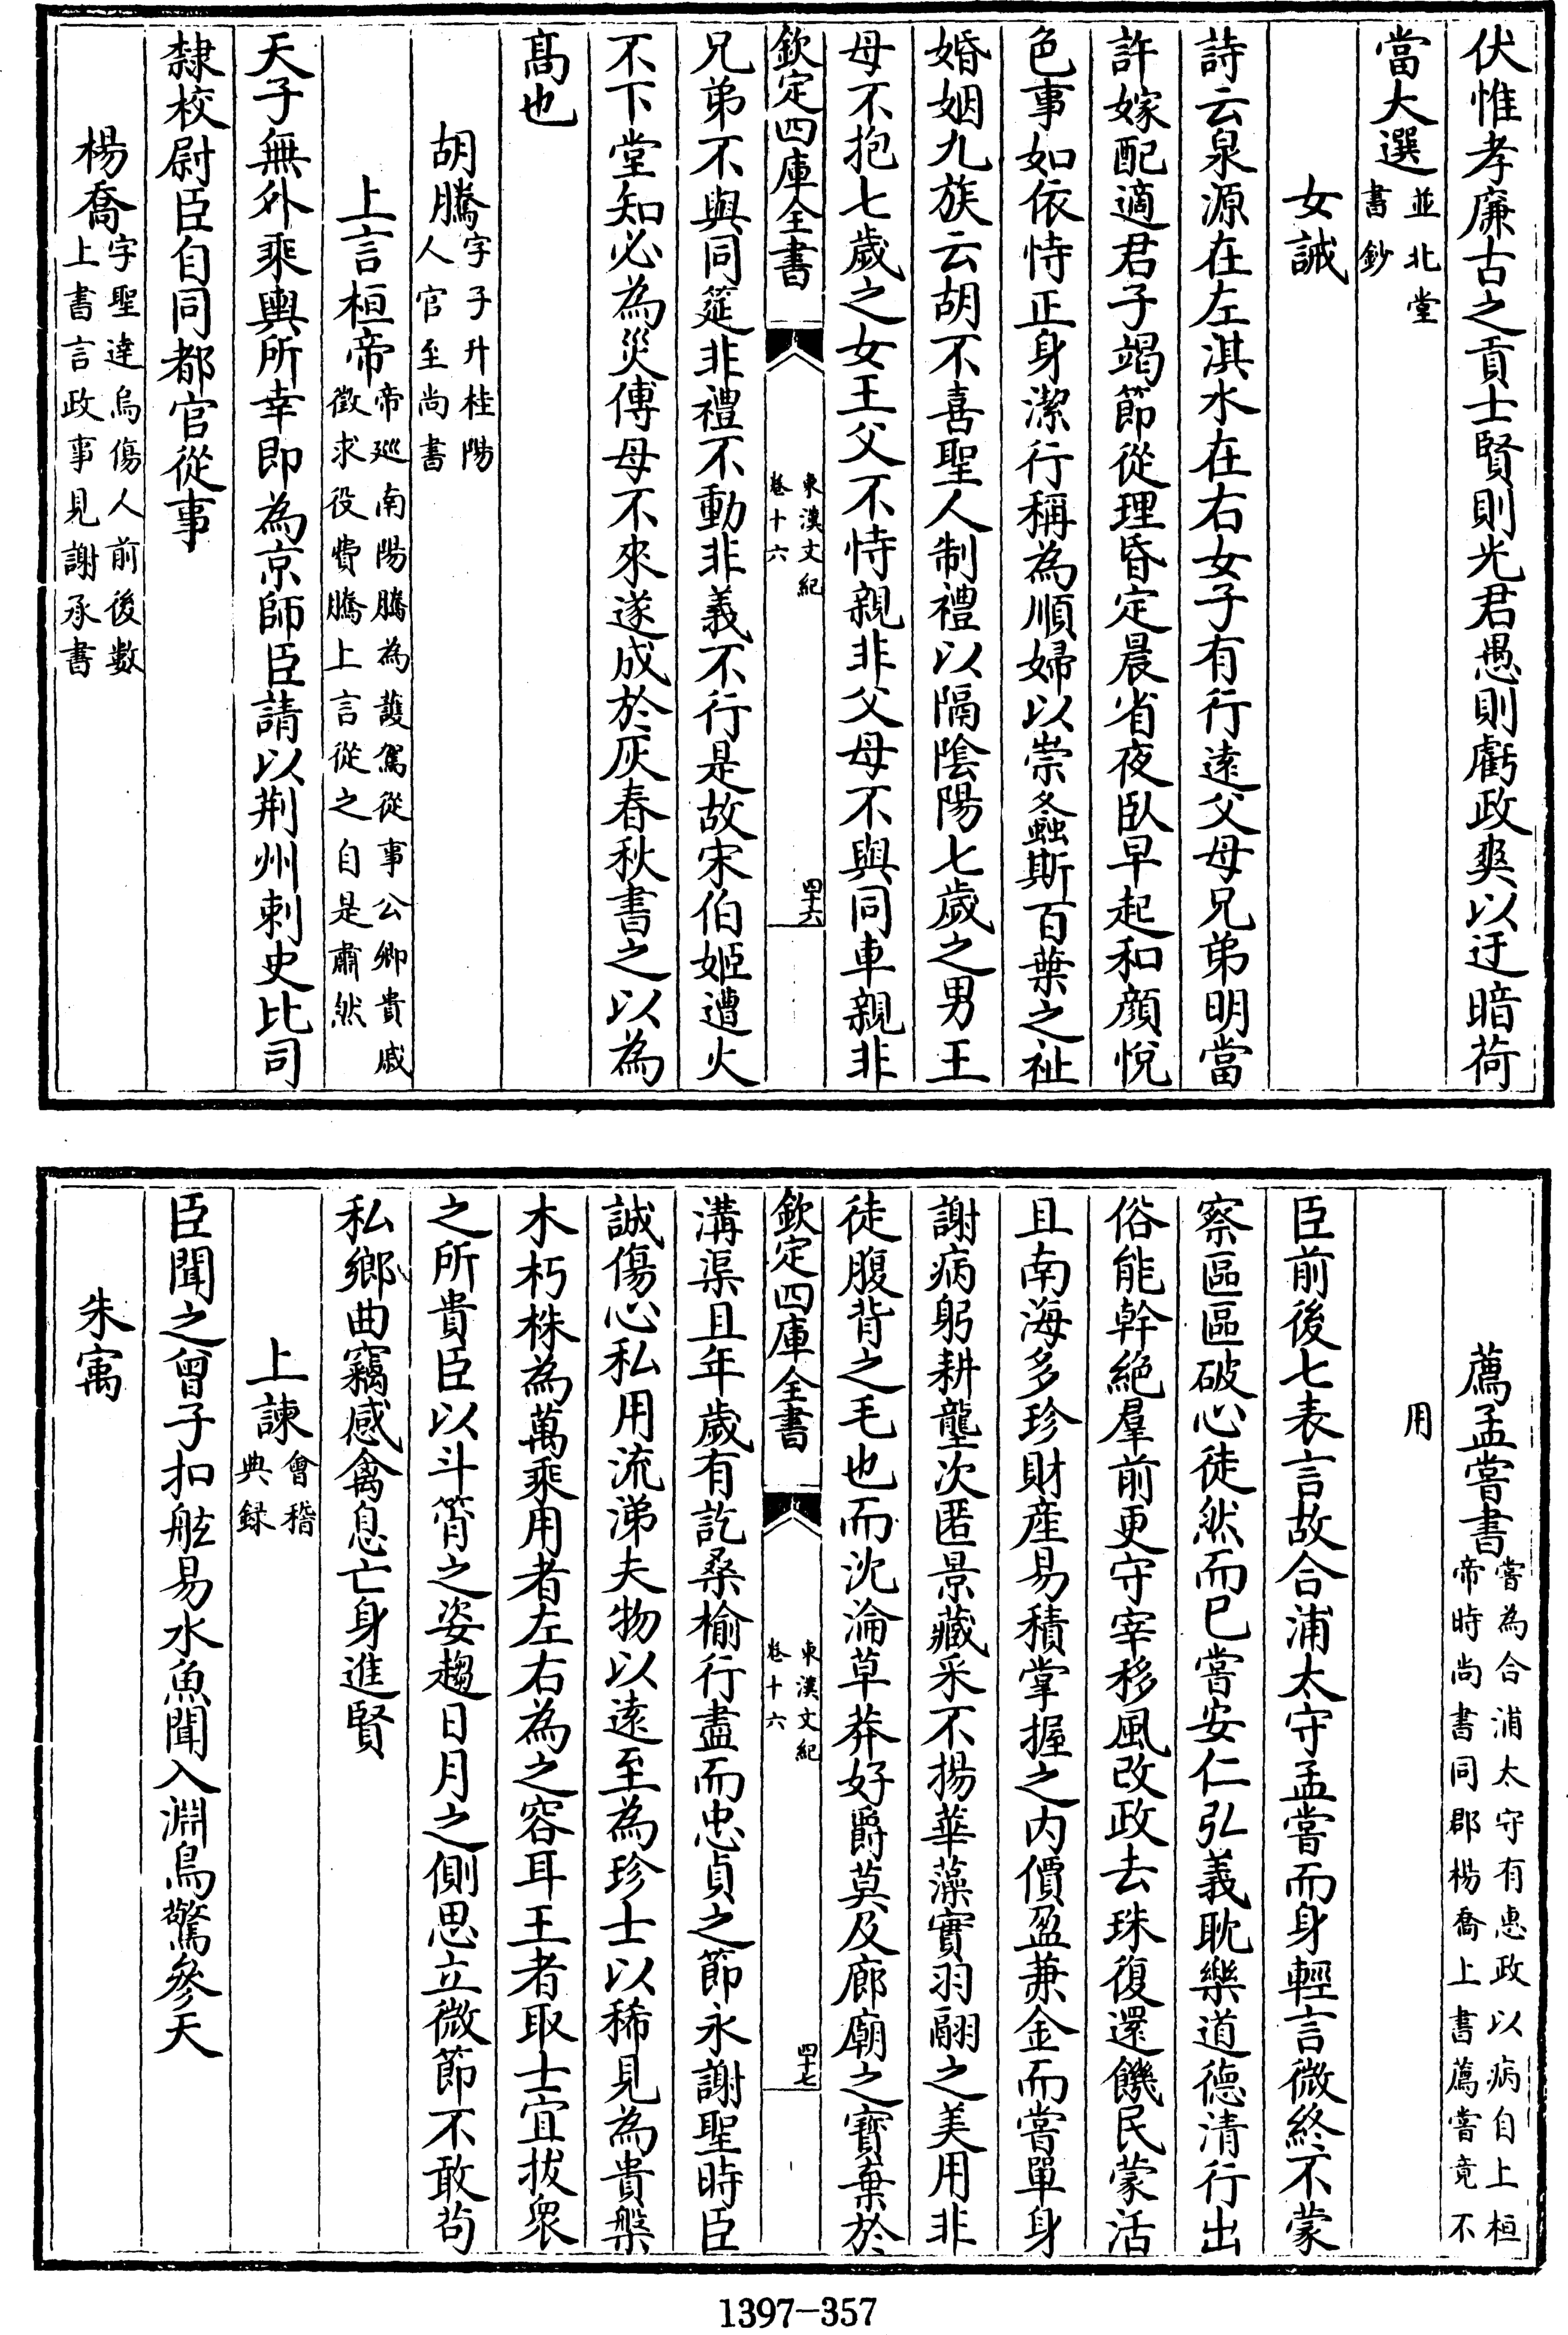 伏惟孝廉古之貢士賢則光君愚則虧政奕以迂暗荷
當大選並北堂書鈔
女誡
詩云泉源在左淇水在右女子有行逺父母兄弟明當
許嫁配適君子竭節從理昏定晨省夜臥早起和顔悅
色事如依恃正身潔行稱為順婦以崇螽斯百葉之祉
婚姻九族云胡不喜聖人制禮以隔陰陽七歲之男王
母不抱七歲之女王父不恃親非父母不與同車親非
欽定四庫全書
東漢文紀
卷十六
四十六
兄弟不與同筵非禮不動非義不行是故宋伯姬遭火
不下堂知必為災傅母不來遂成於灰春秋書之以為
髙也
胡騰字子升桂陽人官至尚書
上言桓帝帝廵南陽騰為䕶駕從事公卿貴戚徵求役費騰上言從之自是肅然
天子無外乘輿所幸即為京師臣請以荆州刺史比司
隸校尉臣自同都官從事
楊喬字聖逹烏傷人前後數上書言政事見謝承書
薦孟嘗書嘗為合浦太守有惠政以病自上桓帝時尚書同郡楊喬上書薦嘗竟不
用
臣前後七表言故合浦太守孟嘗而身輕言微終不蒙
察區區破心徒然而已嘗安仁弘義耽樂道德清行出
俗能幹絶羣前更守宰移風改政去珠復還饑民蒙活
且南海多珍財産易積掌握之内價盈兼金而嘗單身
謝病躬耕壟次匿景藏采不揚華藻實羽翮之美用非
徒腹背之毛也而沈淪草莽好爵莫及廊廟之寳棄於
欽定四庫全書
東漢文紀
卷十六
四十七
溝渠且年歲有訖桑榆行盡而忠貞之節永謝聖時臣
誠傷心私用流涕夫物以逺至為珍士以稀見為貴槃
木朽株為萬乘用者左右為之容耳王者取士宜拔衆
之所貴臣以斗筲之姿趨日月之側思立微節不敢茍
私鄉曲竊感禽息亡身進賢
上諫會稽典録
臣聞之曾子扣舷易水魚聞入淵鳥驚參天
朱㝢
1397-357